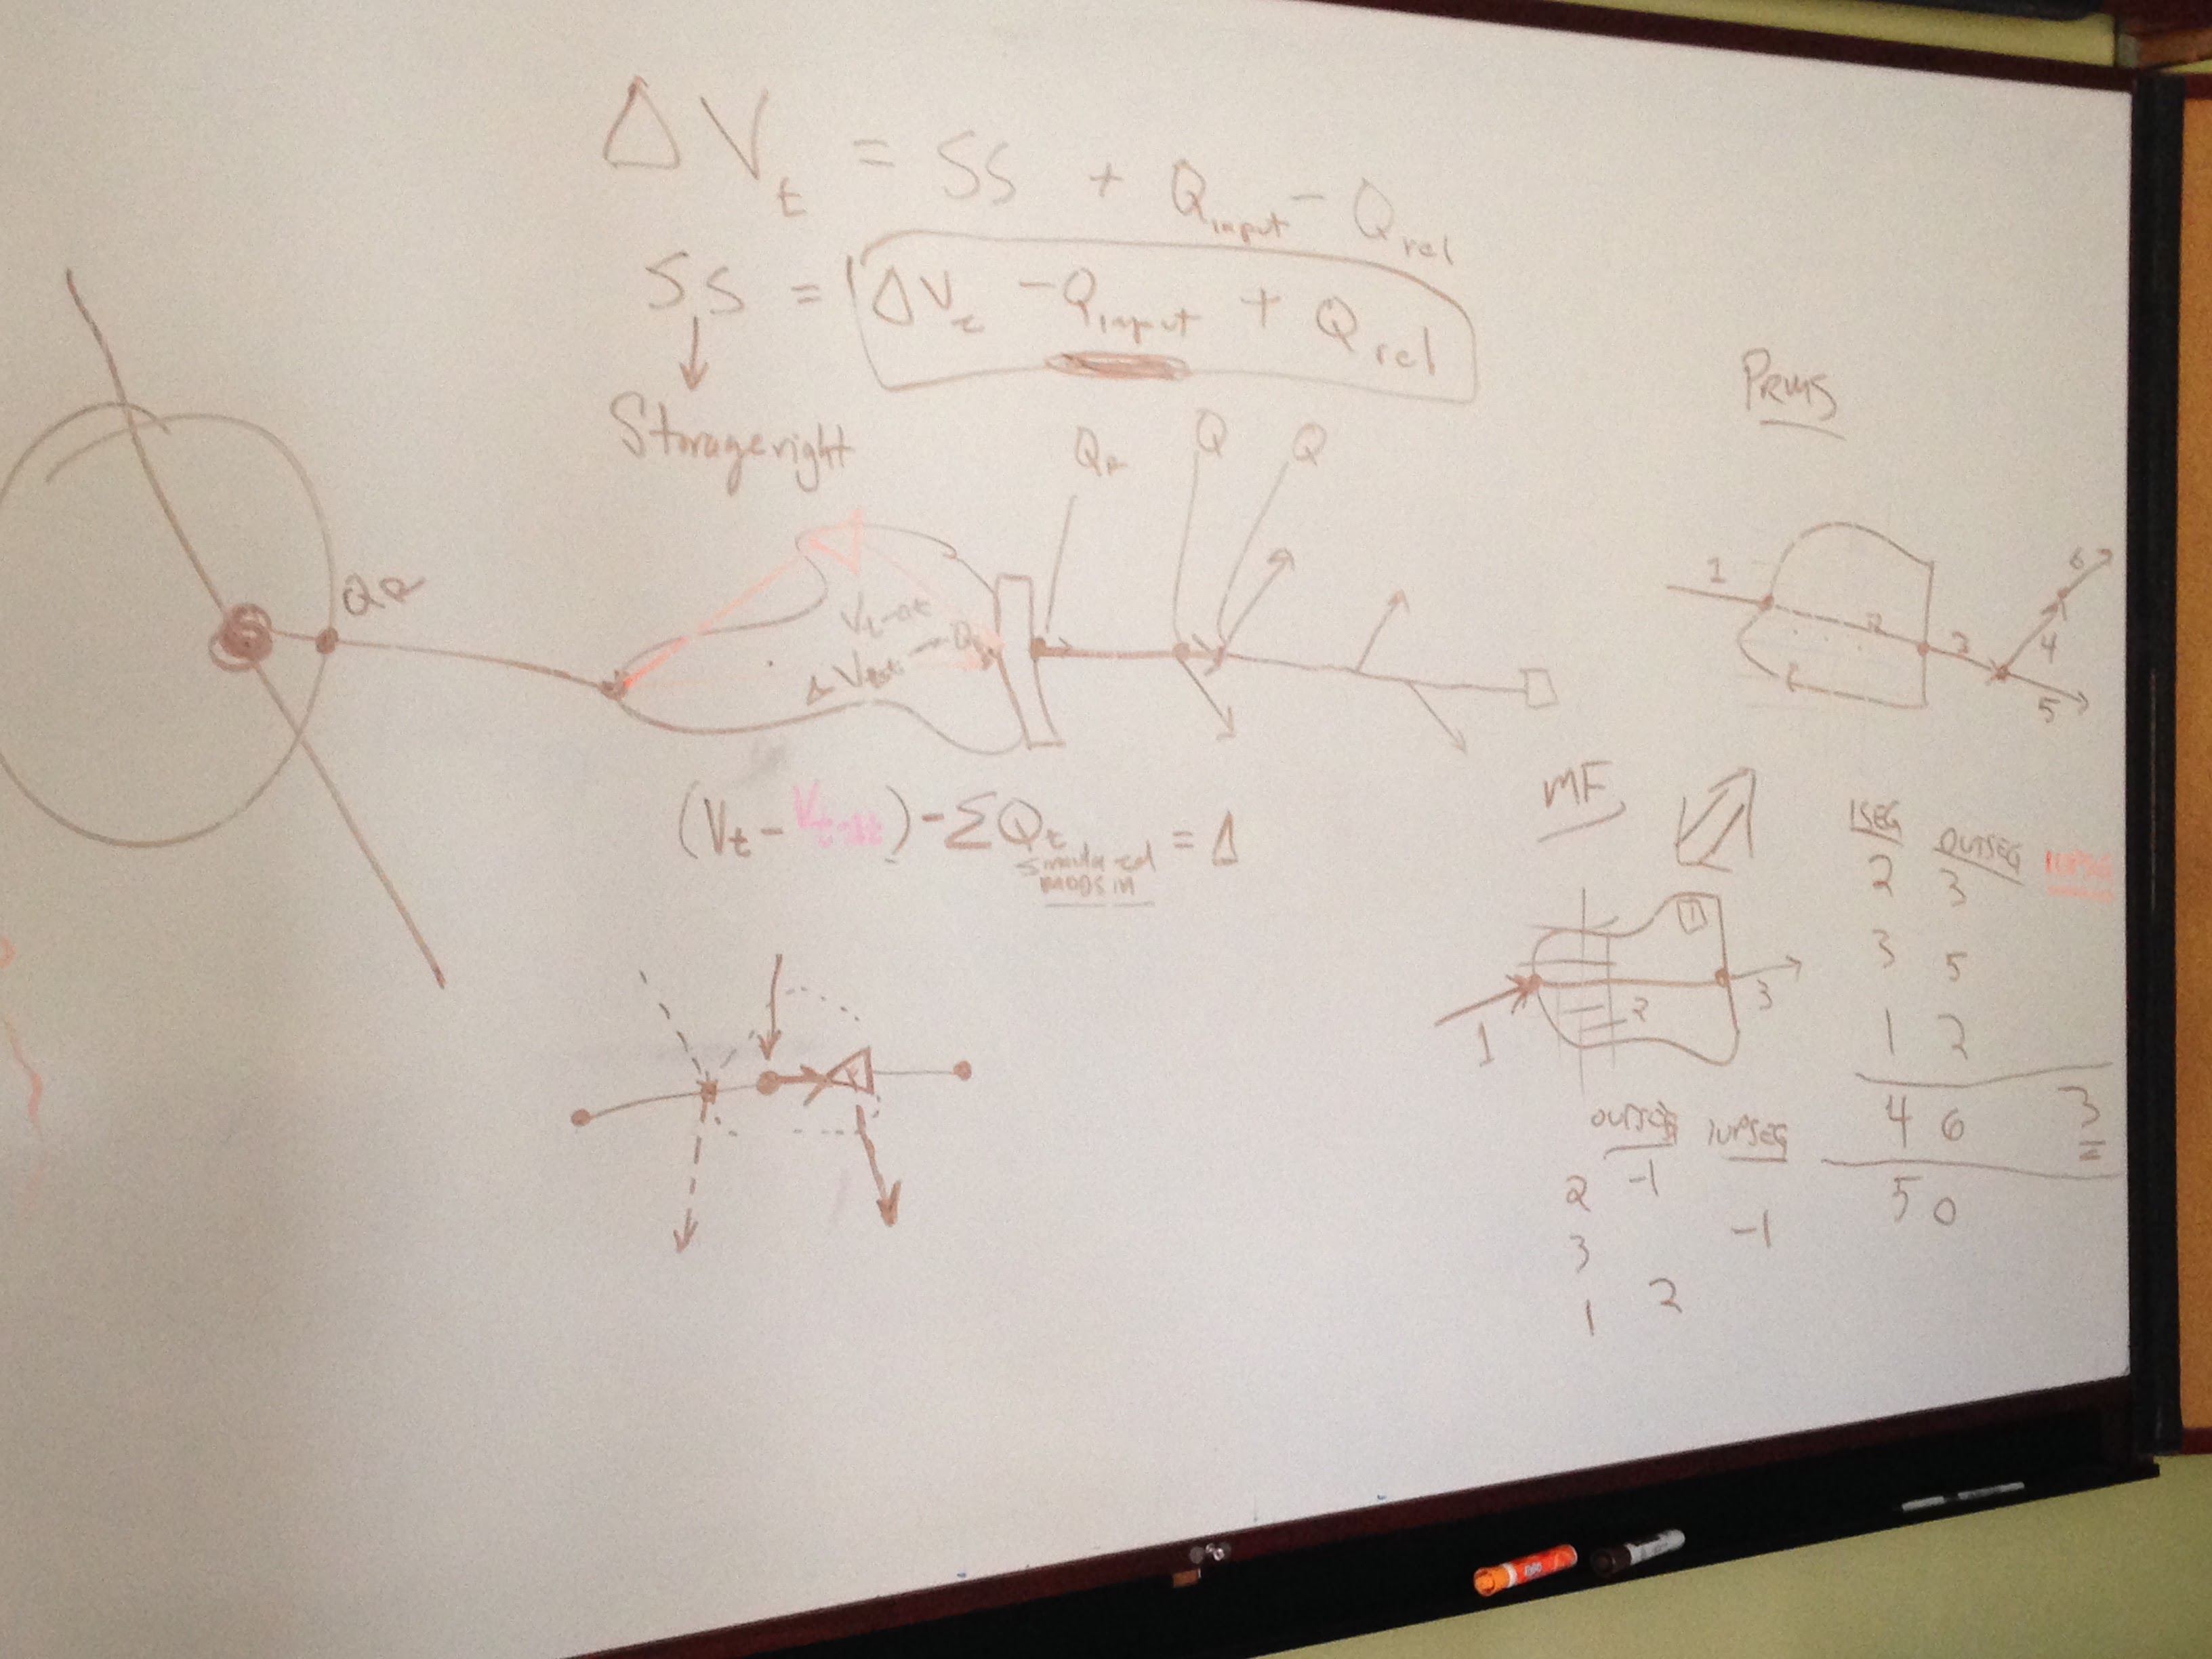 ΔV_t = SS + Q_input - Q_rel
SS = ΔV_t - Q_input + Q_rel
Storage right
Q_R Q Q
Q_R
V_t-Δt
(V_t - V_t-Δt) - ΣQ_t = Δ
simulated
MODSIM
PRMS
1 2 3 4 5 6
MF
1 2 3
ISEG OUTSEG IUPSEG
2 3
3 5
1 2
4 6 3
5 0
OUTSEG IUPSEG
2 -1
3 -1
1 2